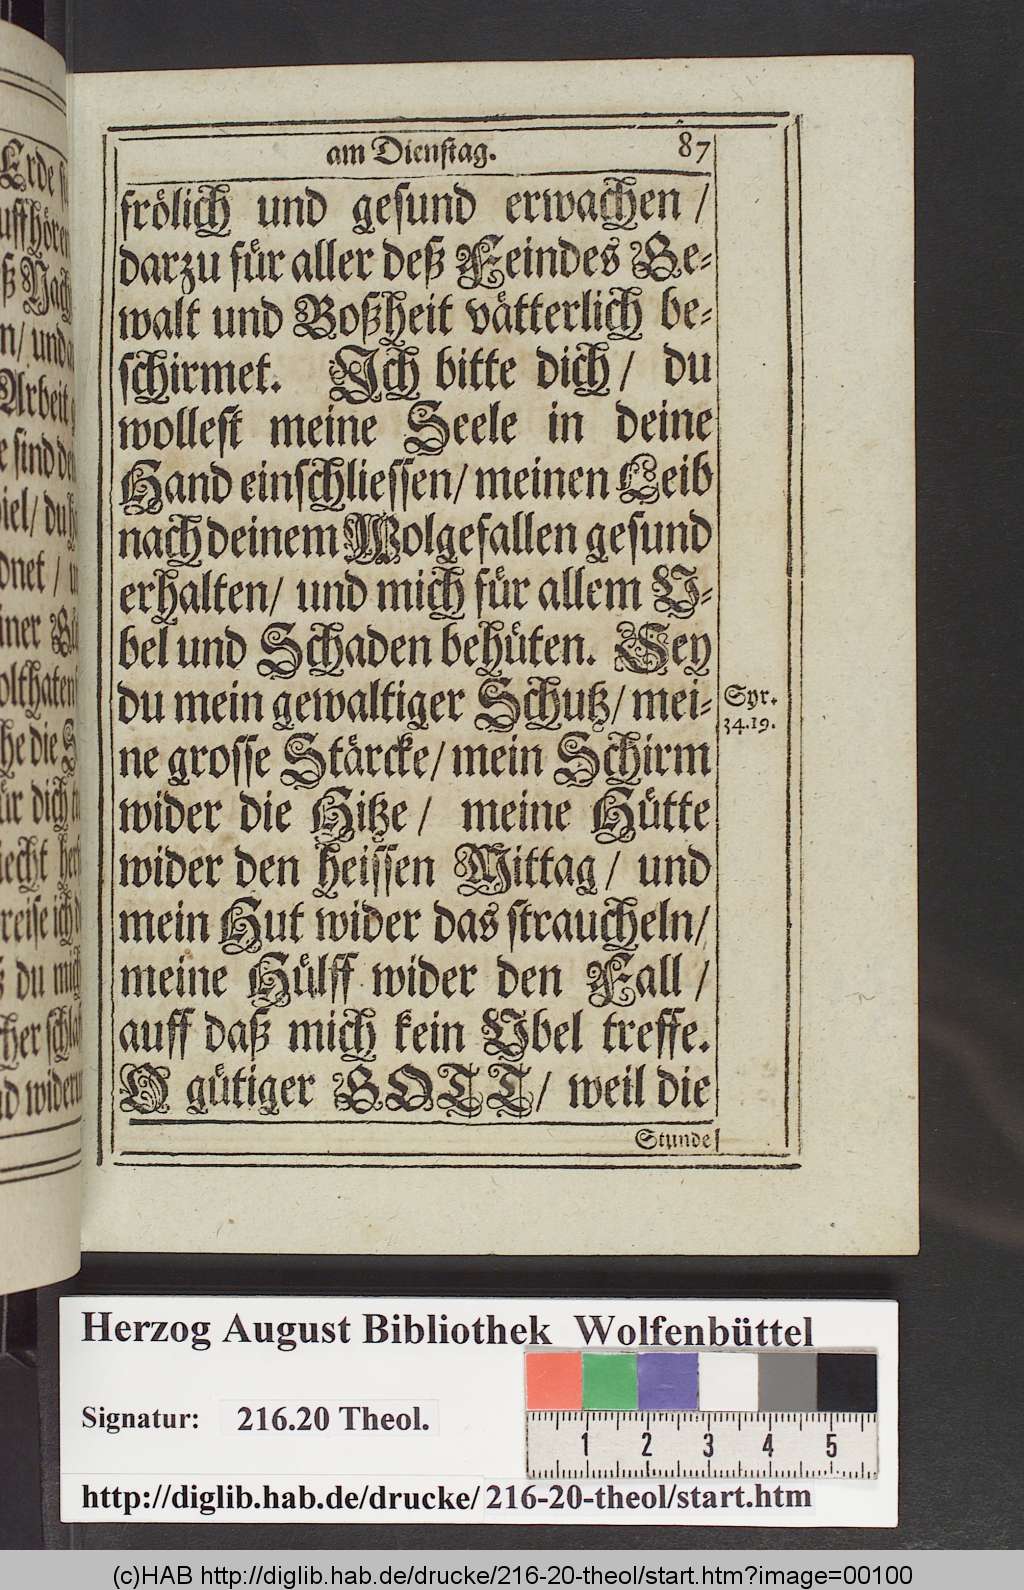 am Dienstag.
87
frölich und gesund erwachen /
darzu für aller deß Feindes Ge-
walt und Boßheit vätterlich be-
schirmet. Ich bitte dich / du
wollest meine Seele in deine
Hand einschliessen / meinen Leib
nach deinem Wolgefallen gesund
erhalten / und mich für allem U-
bel und Schaden behüten. Sey
du mein gewaltiger Schutz / mei-
ne grosse Stärcke / mein Schirm
wider die Hitze / meine Hütte
wider den heissen Mittag / und
mein Hut wider das straucheln /
meine Hülff wider den Fall /
auff daß mich kein Ubel treffe.
O gütiger GOTT / weil die
Stunde
Syr.
34.19.
Herzog August Bibliothek Wolfenbüttel
Signatur: 216.20 Theol.
1 2 3 4 5
http://diglib.hab.de/drucke/216-20-theol/start.htm
(c)HAB http://diglib.hab.de/drucke/216-20-theol/start.htm?image=00100